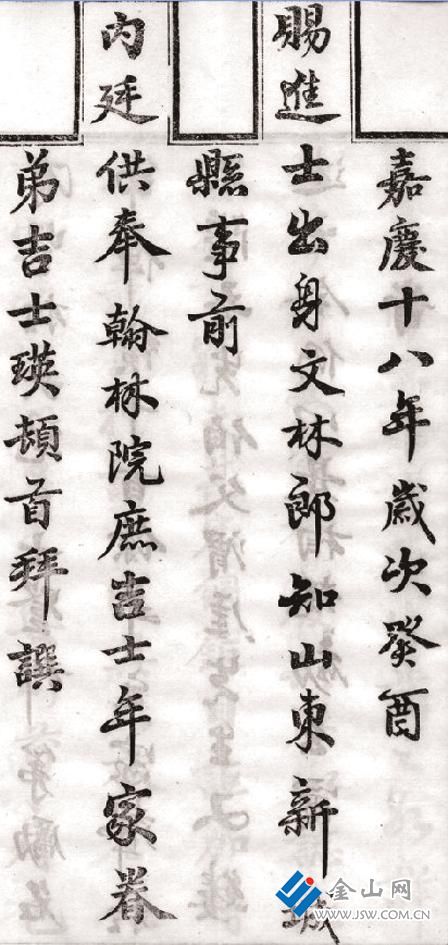 嘉慶十八年歲次癸酉
賜進士出身文林郎知山東新城
縣事前
內廷供奉翰林院庶吉士年家眷
弟吉士瑛頓首拜譔
金山网
www.JSW.com.cn